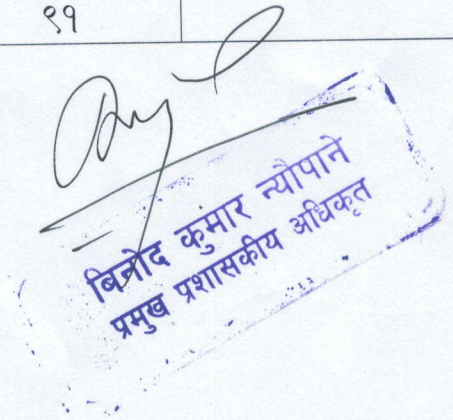 ९१
बिनोद कुमार न्यौपाने
प्रमुख प्रशासकीय अधिकृत